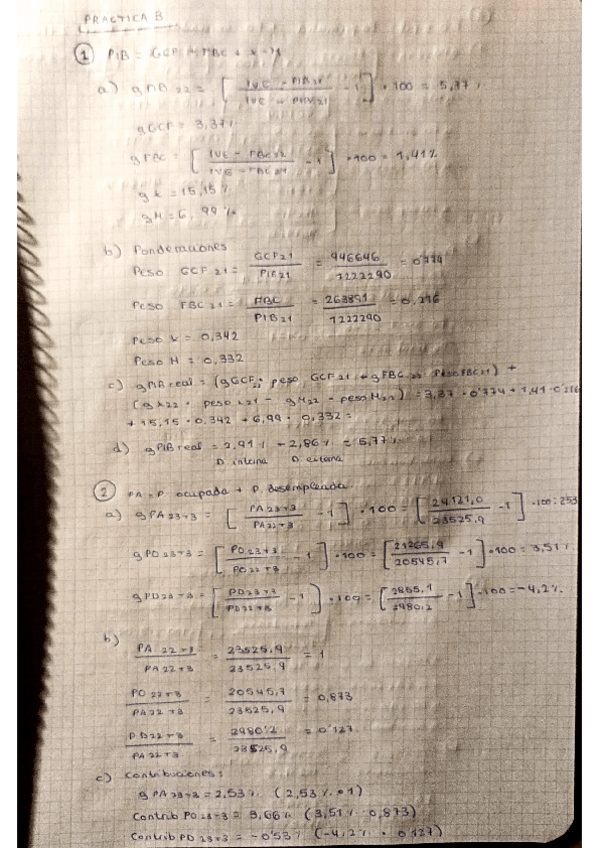 PRACTICA B
① PIB = GCF + FBC + X - M
a) gPIB 22 = [ IVE - PIB22 / IVE - PIB21 - 1 ] · 100 = 5,77 %
gGCF = 3,37%
gFBC = [ IVE - FBC22 / IVE - FBC21 - 1 ] · 100 = 1,41%
gX = 15,15 %
gM = 6,99 %
b) Ponderaciones
Peso GCF 21 = GCF21 / PIB21 = 946646 / 1222290 = 0'774
Peso FBC 21 = FBC / PIB21 = 263891 / 1222290 = 0,216
Peso X = 0,342
Peso M = 0,332
c) gPIB real = (gGCF22 · peso GCF21 + gFBC 22 · Peso FBC21) +
(gX22 · peso X21 - gM22 · peso M21) = 3,37 · 0'774 + 1,41 · 0'216
+ 15,15 · 0,342 + 6,99 · 0,332 =
d) gPIB real = 2,91 % + 2,86 % = 5,77 %
D. interna D. externa
② PA = P. ocupada + P. desempleada
a) gPA 23T3 = [ PA 23T3 / PA 22T3 - 1 ] · 100 = [ 24121,0 / 23525,9 - 1 ] · 100 = 2,53
gPO 23T3 = [ PO 23T3 / PO 22T3 - 1 ] · 100 = [ 21265,9 / 20545,7 - 1 ] · 100 = 3,51 %
gPD 23T3 = [ PD 23T3 / PD 22T3 - 1 ] · 100 = [ 2855,1 / 2980,2 - 1 ] · 100 = -4,2%
b) PA 22T3 / PA 22T3 = 23525,9 / 23525,9 = 1
PO 22T3 / PA 22T3 = 20545,7 / 23525,9 = 0,873
PD 22T3 / PA 22T3 = 2980'2 / 23525,9 = 0'127
c) Contribuciones:
gPA 23T3 = 2,53 % (2,53 % · 1)
Contrib PO 23T3 = 3,06 % (3,51 % · 0,873)
Contrib PD 23T3 = -0'53 % (-4,2 % · 0'127)